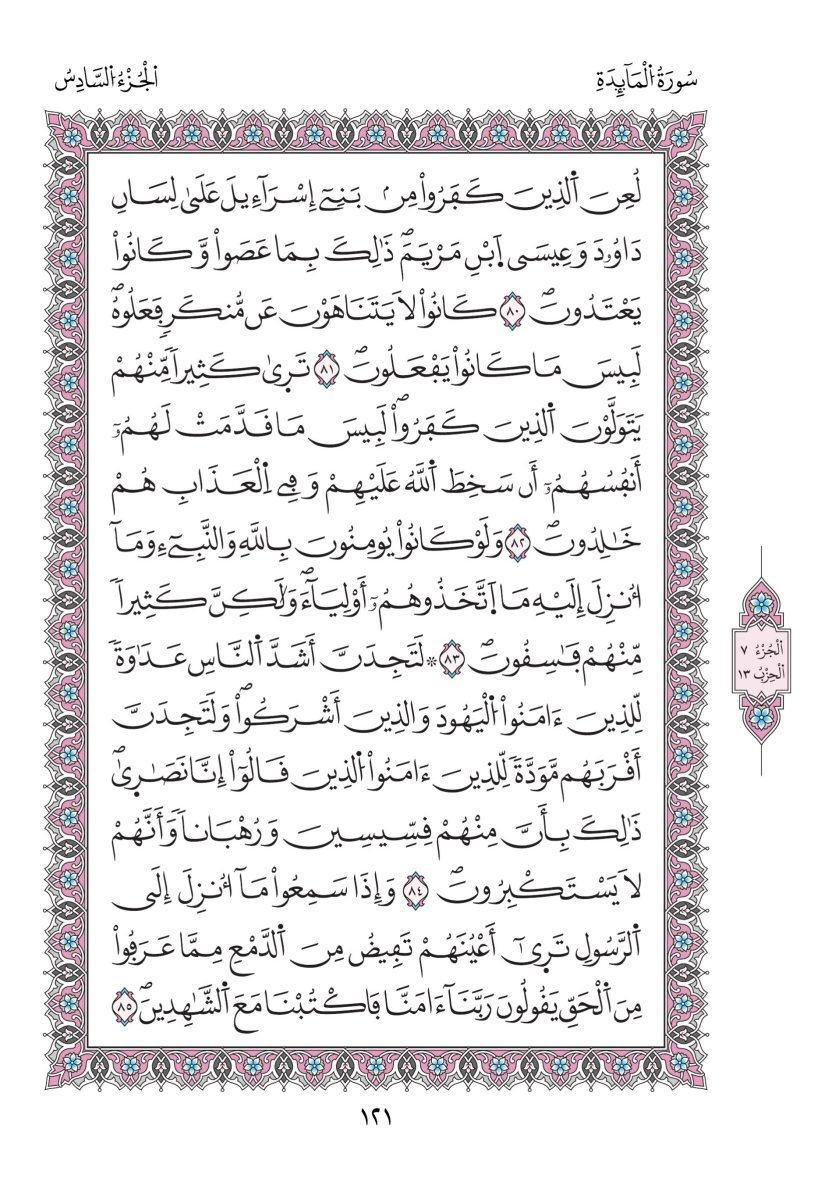 سُورَةُ اَ۬لْمَآئِدَةِ
اَ۬لْجُزْءُ اَ۬لسَّادِسُ
لُعِنَ اَ۬لذِينَ كَفَرُواْ مِنۢ بَنِےٓ إِسْرَآءِيلَ عَلَىٰ لِسَانِ
دَاوُۥدَ وَعِيسَى اَ۪بْنِ مَرْيَمَۖ ذَٰلِكَ بِمَا عَصَواْ وَّكَانُواْ
يَعْتَدُونَۖ ٨٠ كَانُواْ لَا يَتَنَاهَوْنَ عَن مُّنكَرٖ فَعَلُوهُۖ
لَبِيسَ مَا كَانُواْ يَفْعَلُونَۖ ٨١ تَر۪ىٰ كَثِيراٗ مِّنْهُمْ
يَتَوَلَّوْنَ اَ۬لذِينَ كَفَرُواْۖ لَبِيسَ مَا قَدَّمَتْ لَهُمُۥٓ
أَنفُسُهُمُۥٓ أَن سَخِطَ اَ۬للَّهُ عَلَيْهِمْ وَفِے اِ۬لْعَذَابِ هُمْ
خَٰلِدُونَۖ ٨٢ وَلَوْ كَانُواْ يُومِنُونَ بِاللَّهِ وَالنَّبِےٓءِ وَمَآ
أُنزِلَ إِلَيْهِ مَا اَ۪تَّخَذُوهُمُۥٓ أَوْلِيَآءَۖ وَلَٰكِنَّ كَثِيراٗ
مِّنْهُمْ فَٰسِقُونَۖ ٨٣ * لَتَجِدَنَّ أَشَدَّ اَ۬لنَّاسِ عَدَٰوَةٗ
لِّلذِينَ ءَامَنُواْ اُ۬لْيَهُودَ وَالذِينَ أَشْرَكُواْۖ وَلَتَجِدَنَّ
أَقْرَبَهُم مَّوَدَّةٗ لِّلذِينَ ءَامَنُواْ اُ۬لذِينَ قَالُوٓاْ إِنَّا نَصَٰر۪ىٰۖ
ذَٰلِكَ بِأَنَّ مِنْهُمْ قِسِّيسِينَ وَرُهْبَاناٗ وَأَنَّهُمْ
لَا يَسْتَكْبِرُونَۖ ٨٤ وَإِذَا سَمِعُواْ مَآ أُنزِلَ إِلَى
اَ۬لرَّسُولِ تَر۪ىٰٓ أَعْيُنَهُمْ تَفِيضُ مِنَ اَ۬لدَّمْعِ مِمَّا عَرَفُواْ
مِنَ اَ۬لْحَقِّ يَقُولُونَ رَبَّنَآ ءَامَنَّا فَاكْتُبْنَا مَعَ اَ۬لشَّٰهِدِينَۖ ٨٥
اَ۬لْجُزْءُ ٧
اَ۬لْحِزْبُ ١٣
١٢١